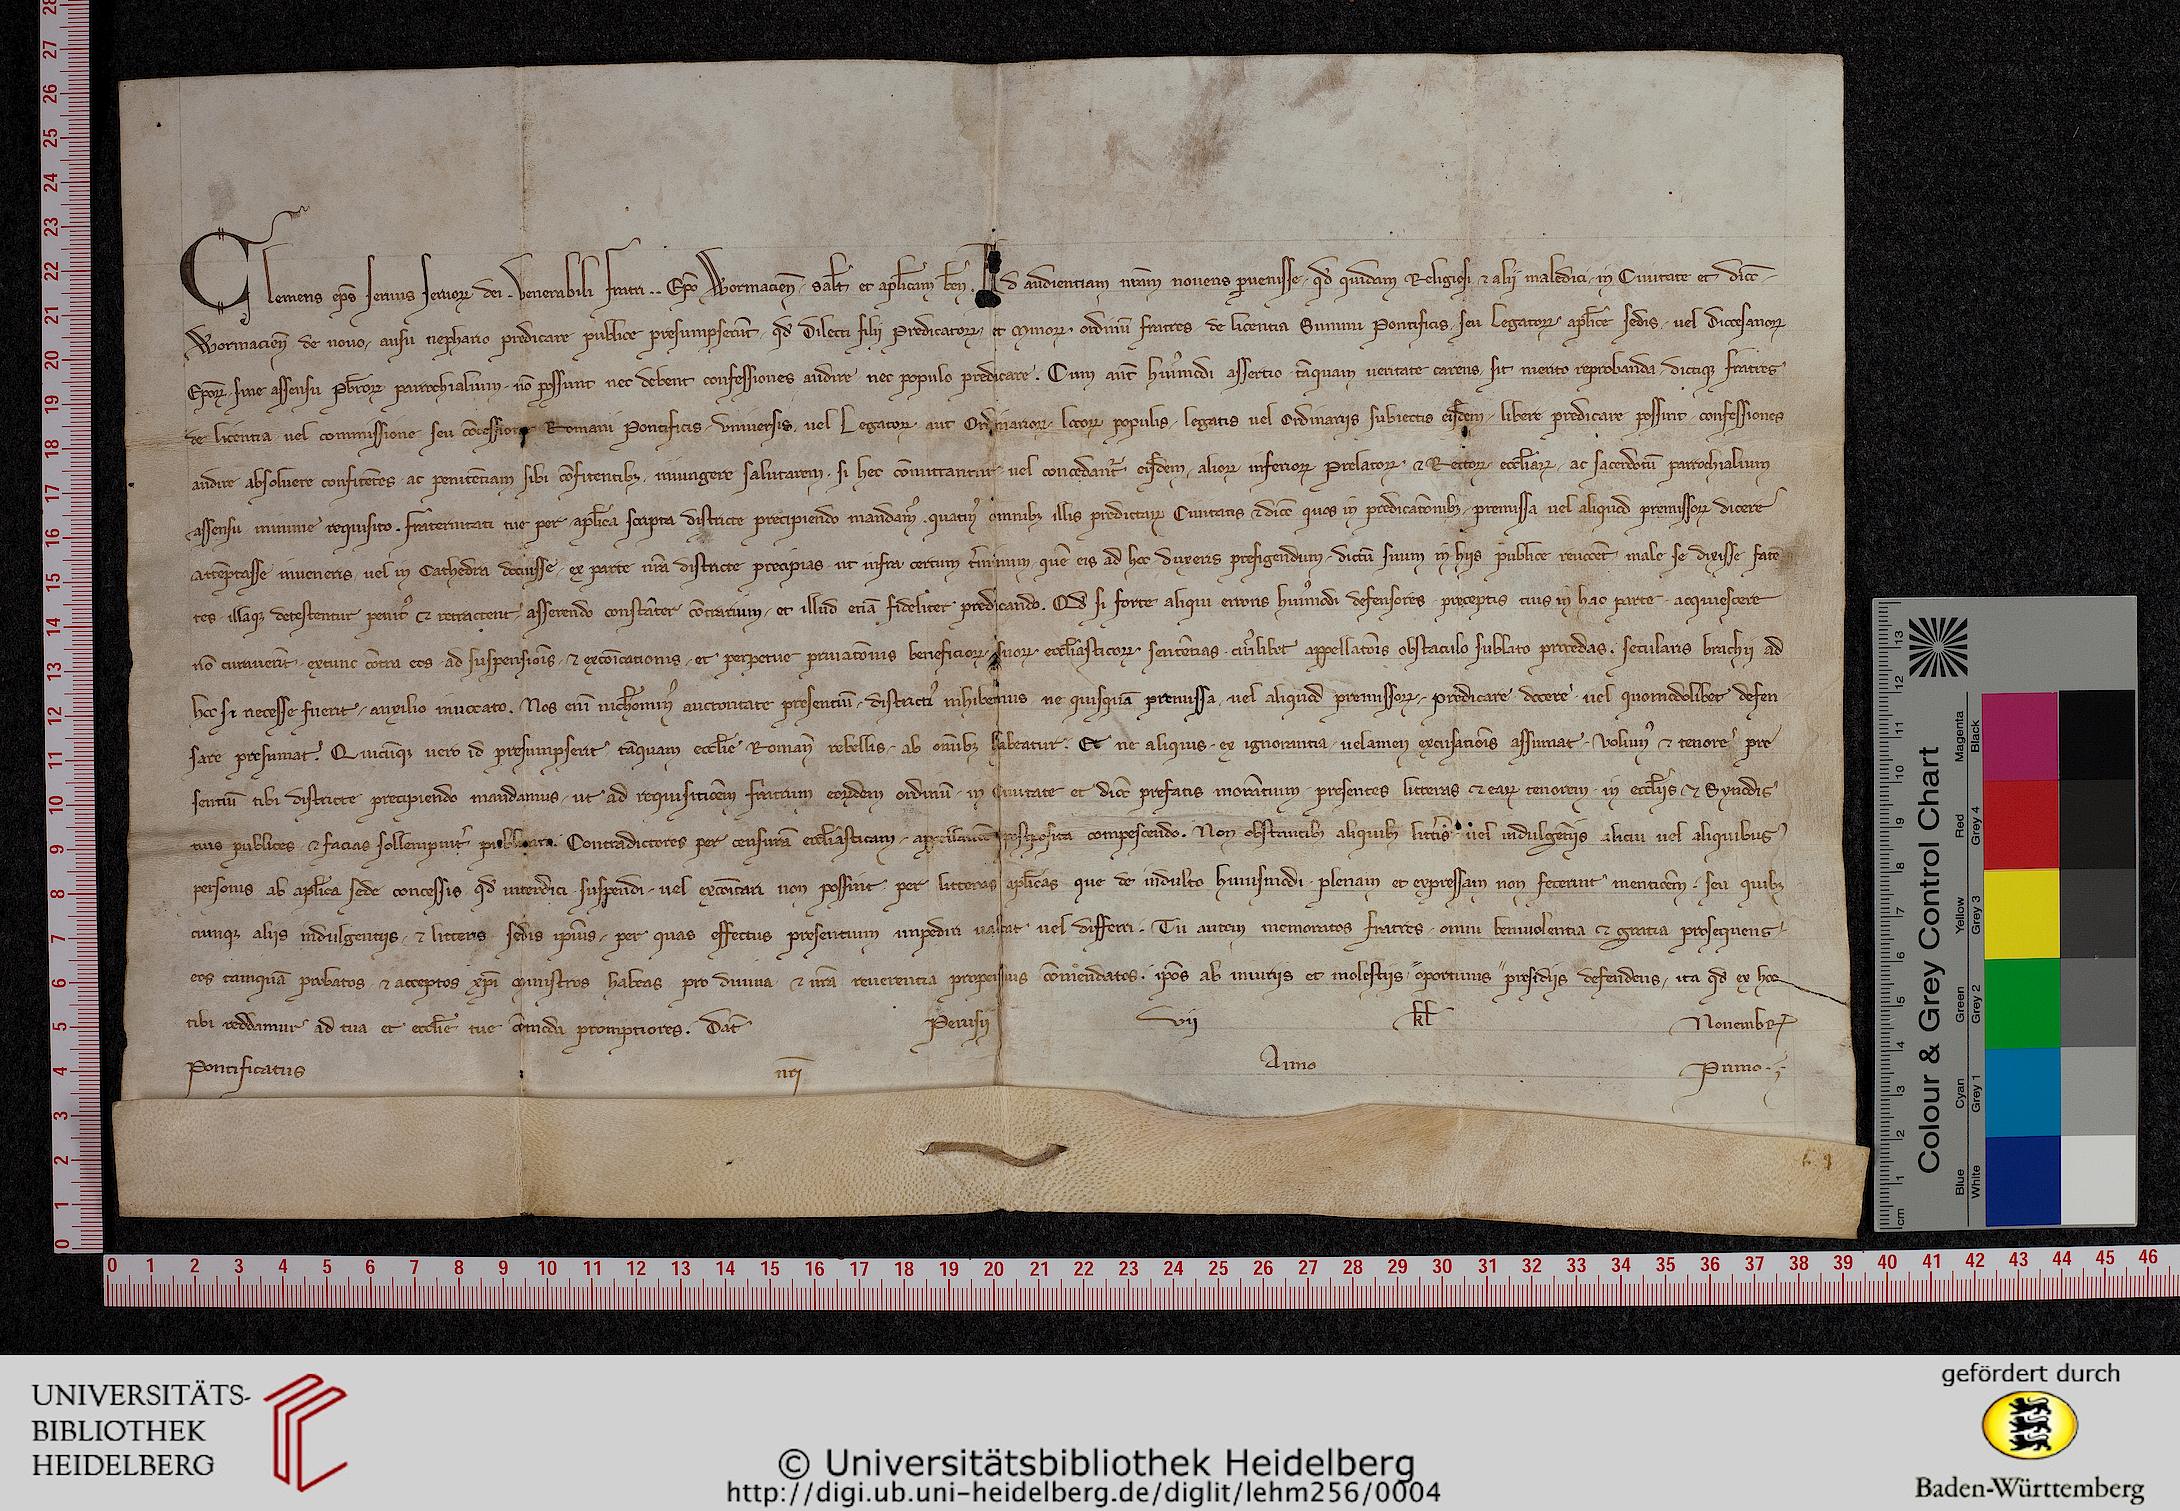 Clemens ep̄s seruus seruoꝝ dei. Venerabili fratri .. Ep̄o Wormacien̄ . salt̄ et apl̄icam ben̄. Ad audientiam nr̄am nouens peruenisse . qd̄ quidam Religiosi ⁊ alij maledici . in Ciuitate et dioc̄
Wormacien̄ de nouo, ausu nephario predicare publice presumpserūt . qd̄ Dilecti filij Predicatoꝝ et Minoꝝ ordinū fratres de licentia Summi Pontificis, seu Legatoꝝ apl̄ice sedis, uel Diocesanoꝝ
Ep̄oꝝ, sine assensu Pb̄roꝝ parrochialium, nō possunt nec debent confessiones audire nec populo predicare. Cum aut̄ hui᾽modi assertio tāquam ueritate carens, sit merito reprobanda, dictiqꝫ fratres
de licentia uel commissione seu cōcessione Romani Pontificis, vniuersis, uel Legatoꝝ aut Ordinarioꝝ locoꝝ populis, legatis uel Ordinariis subiectis eisdem, libere predicare possint confessiones
audire absoluere confitentes ac penitentiam sibi cōfitentibꝫ, iniungere salutarem, si hec cōmittantur uel concedant᾽ eisdem, alioꝝ inferioꝝ Prelatoꝝ ⁊ Rectoꝝ eccl̄iaꝝ, ac sacerdotū parrochialium
assensu minime requisito. fraternitati tue per apl̄ica scripta districte precipiendo mandam᾽ . quatin᾽ omnibꝫ illis predictaꝝ Ciuitatis ⁊ dioc̄ quos in predicatōnibꝫ, premissa uel aliquid premissoꝝ dicere
attēptasse inueneris, uel in Cathedra docuisse, ex parte nr̄a districte precipias, ut infra certum t̄minum, quē eis ad hoc duxeris prefigendum, dictū suum in hijs publice reuocent, male se dixisse fate
tes, illaqꝫ detestentur penit᾽ ⁊ retractent, asserendo constāter cōtrarium, et illud etiā fideliter predicando. Qd̄ si forte aliqui erroris hui᾽modi defensores preceptis tuis in hac parte acquiescere
nō curauerīt, extunc cōtra eos ad suspensiōis, ⁊ excōicationis, et perpetue priuatōnis beneficioꝝ suoꝝ eccl̄iasticoꝝ sentētias, cui᾽libet appellatōis obstaculo sublato procedas, secularis brachij ad
hoc si necesse fuerit, auxilio inuocato. Nos eni nichomin᾽ auctoritate presentiū, districti᾽ inhibemus ne quisquā premissa, uel aliquid premissoꝝ, predicare docere uel quomodolibet defen
sare presumat. Quicūqꝫ uero id presumpserit tāquam eccl̄ie Roman̄ rebellis, ab omībꝫ habeatur. Et ne aliquis ex ignorantia, uelamen excusatiōis assumat, Volum᾽ ⁊ tenore pre
sentiū tibi districte precipiendo mandamus, ut ad requisitiōem fratrum eoꝝdem ordinū, in Ciuitate et dioc̄ prefatis morātium, presentes litteras ⁊ eaꝝ tenorem, in eccl̄ijs ⁊ Synodis
tuis publices, ⁊ facias sollempnit᾽ publicari. Contradictores per censurā eccl̄iasticam, appellatiōe postposita compescendo. Non obstantibꝫ aliquibꝫ litt̄is uel indulgentijs alicui uel aliquibus
personis ab apl̄ica sede concessis qd̄ interdici suspendi, uel excōicari non possint per litteras apl̄icas que de indulto huiusmodi plenam et expressam non fecerint mentiōem, seu quibꝫ
cunqꝫ aliis indulgentijs, ⁊ litteris sedis ipsius, per quas effectus presentium impediri ualeat uel differri. Tu autem memoratos fratres, omni beniuolentia ⁊ gratia prosequens,
eos tanquā probatos ⁊ acceptos xp̄i ministros habeas pro diuina ⁊ nr̄a reuerentia propensius cōmēdatos, ip̄os ab iniuriis et molestijs, oportunis presidijs defendens, ita qd̄ ex hoc
tibi reddamur ad tua et eccl̄ie tue cōmoda promptiores. Dat̄ Perusij vij kl̄ Nouembꝝ
Pontificatus nr̄i Anno Primo.
Colour & Grey Control Chart
Blue Cyan Green Yellow Red Magenta
White Grey 1 Grey 2 Grey 3 Grey 4 Black
UNIVERSITÄTS-
BIBLIOTHEK
HEIDELBERG
© Universitätsbibliothek Heidelberg
http://digi.ub.uni-heidelberg.de/diglit/lehm256/0004
gefördert durch
Baden-Württemberg